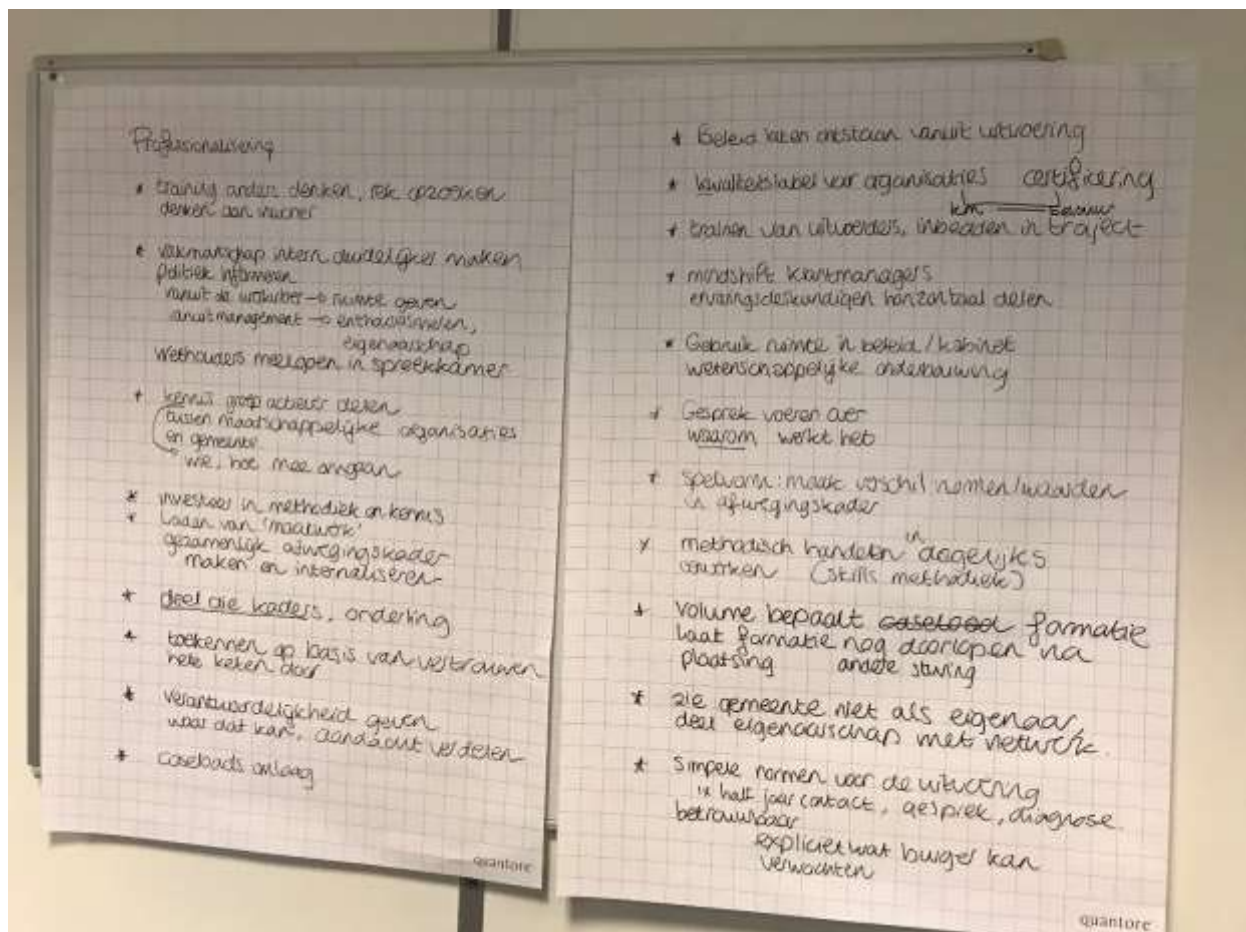 Professionalisering
* training anders denken, rek opzoeken
denken aan voucher
* vakmanschap intern duidelijker maken
politiek informeren
vanuit de uitvoerder → ruimte geven
vanuit management → enthousiasmeren,
eigenaarschap
Wethouders meelopen in spreekkamer
* kennis groep actiever delen
tussen maatschappelijke organisaties
en gemeente
wie, hoe mee omgaan
* investeer in methodiek en kennis
* Laden van 'maatwerk'
gezamenlijk afwegingskader
maken en internaliseren
* deel die kaders, onderling
* toekennen op basis van vertrouwen
hele keten door
* verantwoordelijkheid geven
waar dat kan, aandacht verdelen
* caseloads omlaag
quantore
* Beleid laten ontstaan vanuit uitvoering
* kwaliteitslabel voor organisaties certificering
km
* trainen van uitvoerders, inbedden in traject
* mindshift klantmanagers
ervaringsdeskundigen horizontaal delen
* Gebruik ruimte in beleid/kabinet
wetenschappelijke onderbouwing
* Gesprek voeren over
waarom werkt het
* spelvorm: maak verschil normen/waarden
in afwegingskader
* methodisch handelen in dagelijks
(skills methodiek)
* volume bepaalt caseload formatie
laat formatie nog doorlopen na
plaatsing andere sturing
* zie gemeente niet als eigenaar,
deel eigenaarschap met netwerk.
* Simpele normen voor de uitvoering
1x half jaar contact, gesprek, diagnose.
betrouwbaar
expliciet wat burger kan
verwachten
quantore